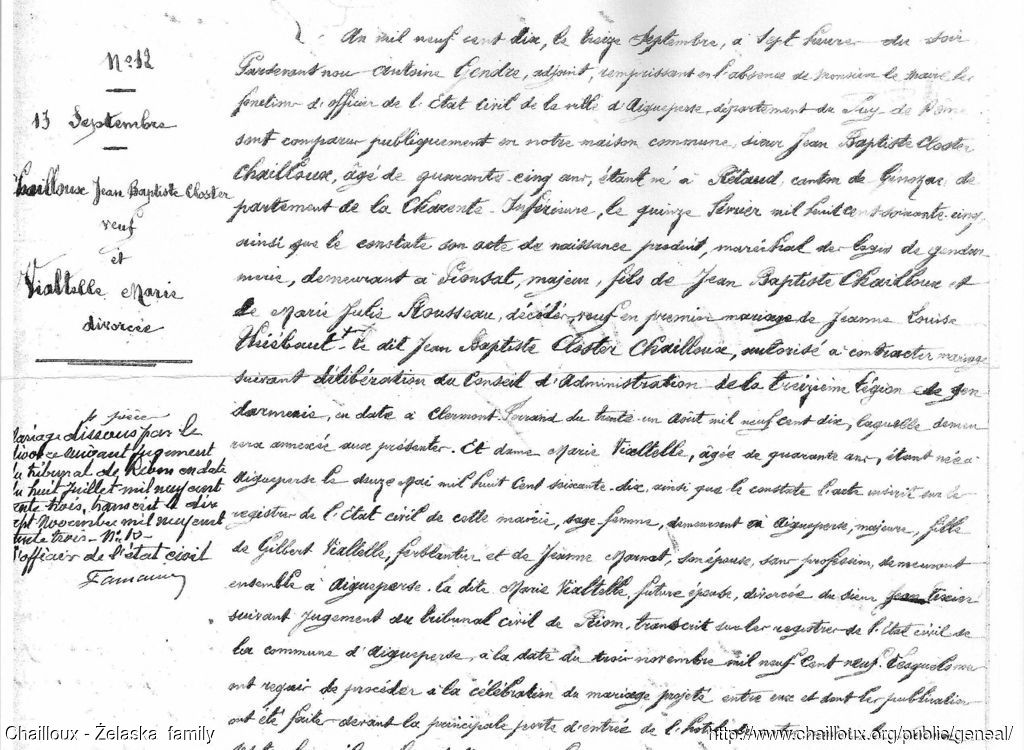 N° 12
13 Septembre
Chailloux Jean Baptiste Closter
veuf
et
Vialtelle Marie
divorcée
mariage dissous par le
divorce suivant jugement
du tribunal de Riom en date
du huit Juillet mil neuf cent
trente trois, transcrit le dix
sept Novembre mil neuf cent
trente trois - N° 10 -
l'officier de l'état civil
An mil neuf cent dix, le treize Septembre, à Sept heures du soir
Pardevant nous Antoine Gendre, adjoint, remplissant en l'absence de Monsieur le Maire les
fonctions d'officier de l'Etat civil de la ville d'Aigueperse, département du Puy de Dôme
sont comparus publiquement en notre maison commune, sieur Jean Baptiste Closter
Chailloux, âgé de quarante cinq ans, étant né à Rétaud, canton de Gémozac, dé
partement de la Charente Inférieure, le quinze février mil huit cent soixante cinq,
ainsi que le constate son acte de naissance produit, maréchal des logis de gendar
merie, demeurant à Pionsat, majeur, fils de Jean Baptiste Chailloux et
de Marie Julie Rousseau, décédés, veuf en premier mariage de Jeanne Louise
Thiébaut. Le dit Jean Baptiste Closter Chailloux, autorisé à contracter mariage
suivant délibération du Conseil d'Administration de la treizième légion de gen
darmerie, en date à Clermont-Ferrand du trente un août mil neuf cent dix, laquelle demeu
rera annexée aux présentes. Et dame Marie Vialtelle, âgée de quarante ans, étant née à
Aigueperse le douze Mai mil huit cent soixante-dix, ainsi que le constate l'acte inscrit sur les
registres de l'Etat civil de cette mairie, sage-femme, demeurant à Aigueperse, majeure, fille
de Gilbert Vialtelle, ferblantier et de Jeanne Mornat, son épouse, sans profession, demeurant
ensemble à Aigueperse. La dite Marie Vialtelle, future épouse, divorcée du sieur Jean
suivant jugement du tribunal civil de Riom, transcrit sur les registres de l'Etat civil de
la commune d'Aigueperse, à la date du trois novembre mil neuf cent neuf. Lesquels nous
ont requis de procéder à la célébration du mariage projeté entre eux et dont les publications
ont été faites devant la principale porte d'entrée de l'hôtel
Chailloux - Żelaska family
http://www.chailloux.org/public/geneal/